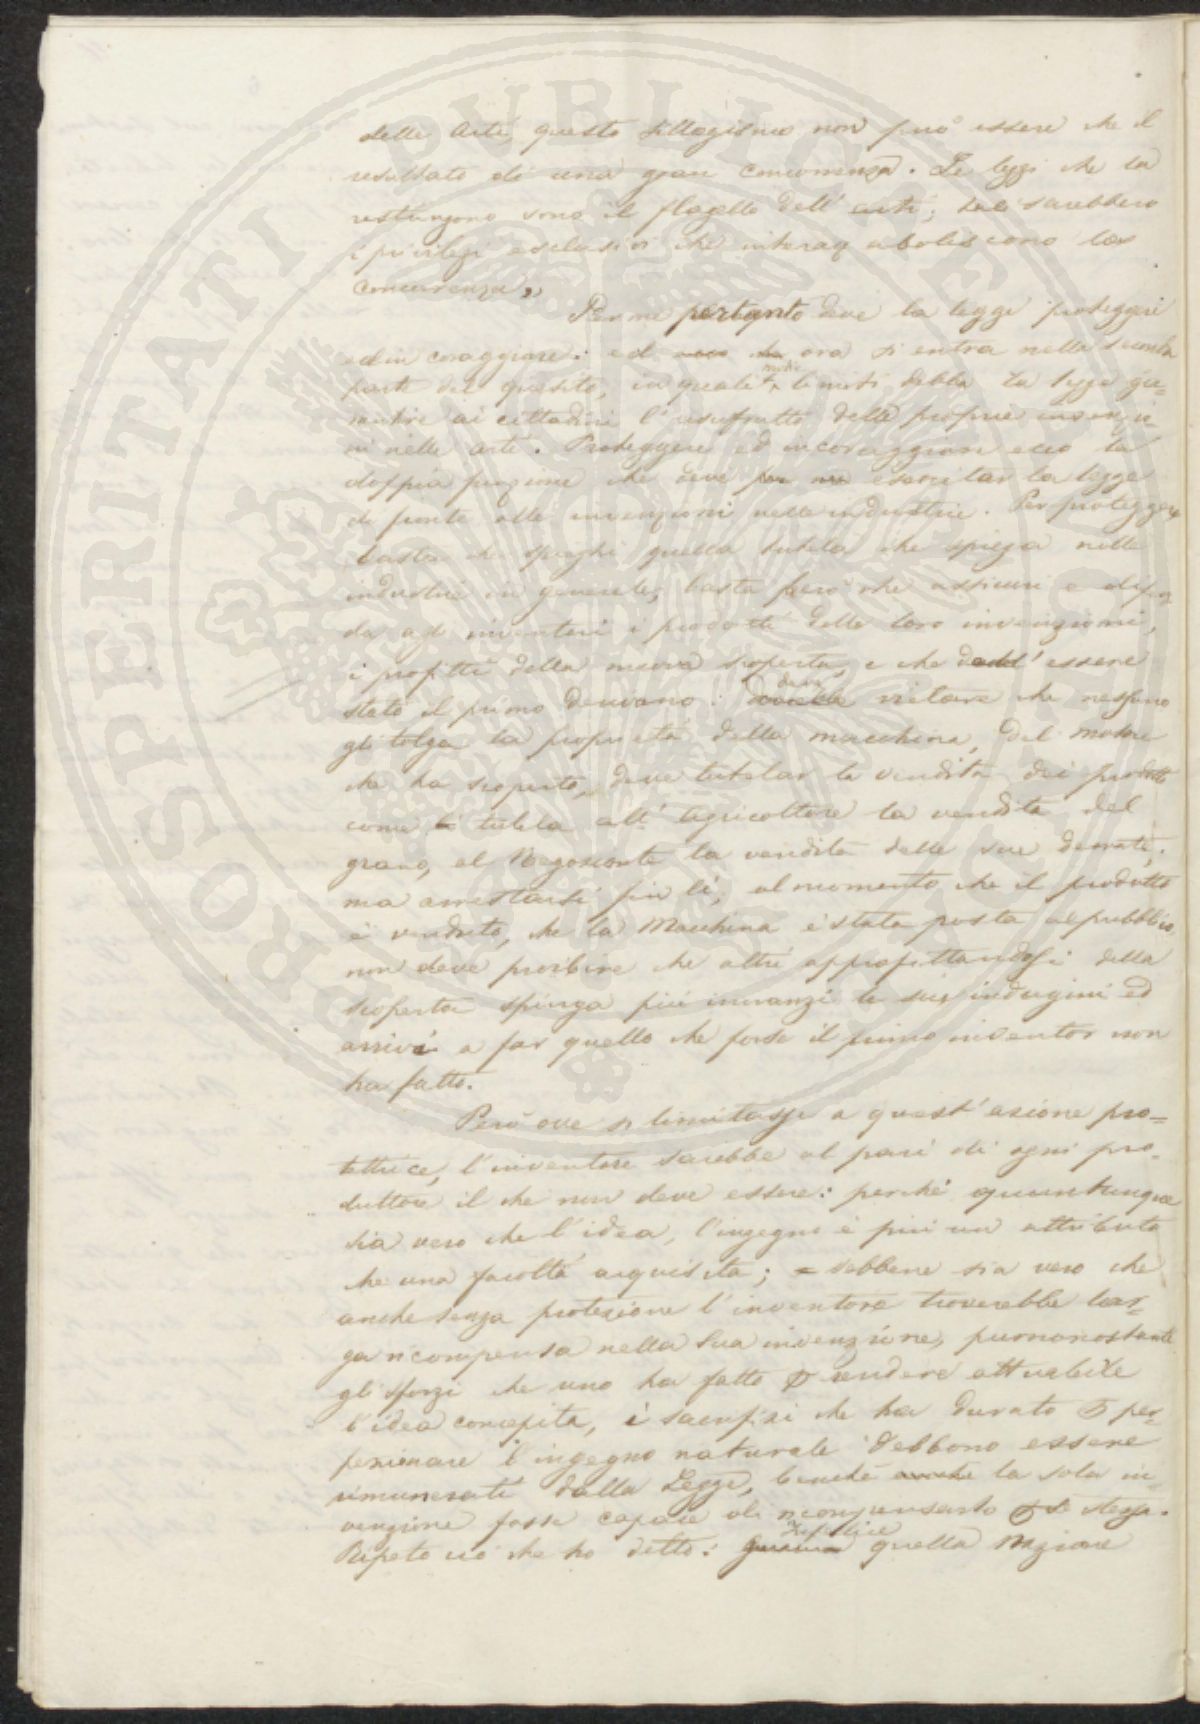 PROSPERITATI PUBLICAE AUGENDAE
delle Arti, questo sillogismo non può essere che il
resultato di una gran concorrenza. Le leggi che la
restringono sono il flagello dell' arti; tali sarebbero
i privilegi esclusivi che interam aboliscono la
concorrenza,,
Per me pertanto deve la legge proteggere
ed in coraggiare: ed ora si entra nella seconda
parte del quesito, in quali limiti debba la legge ga=
rantire ai cittadini l'usufrutto delle proprie invenzio=
ni nelle arti. Proteggere ed incoraggiare ecco la
doppia funzione che deve esercitar la legge
di fronte alle invenzioni nelle industrie. Per proteggere
basta che spieghi quella tutela che spiega nelle
industrie in generale, basta però che assicuri e difen
da agl' inventori i prodotti delle loro invenzioni,
i profitti della nuova scoperta, e che dall' essere
stato il primo derivano: deve vietare che nessuno
gli tolga la proprietà della macchina, del motore
che ha scoperto, deve tutelar la vendita dei prodotti
come tutela all' agricoltore la vendita del
grano, al Negoziante la vendita delle sue derrate;
ma arrestarsi fin lì, al momento che il prodotto
è venduto, che la Macchina è stata posta al pubblico
non deve proibire che altri approfittandosi della
scoperta spinga più innanzi le sue indagini ed
arrivi a far quello che forse il primo inventor non
ha fatto.
Però ove si limitasse a quest' azione pro=
tettrice, l'inventore sarebbe al pari di ogni pro=
duttore il che non deve essere: perchè quantunque
sia vero che l'idea, l'ingegno è più un attributo
che una facoltà acquisita; = sebbene sia vero che
anche senza protezione l'inventore troverebbe lar=
ga ricompensa nella sua invenzione, purnonostante
gli sforzi che uno ha fatto rendere attuabile
l'idea concepita, i sacrifizi che ha durato per=
fezionare l'ingegno naturale debbono essere
rimunerati dalla Legge, benchè anche la sola in
venzione fosse capace di ricompensarlo se stessa.
Ripeto ciò che ho detto: Infelice quella Nazione